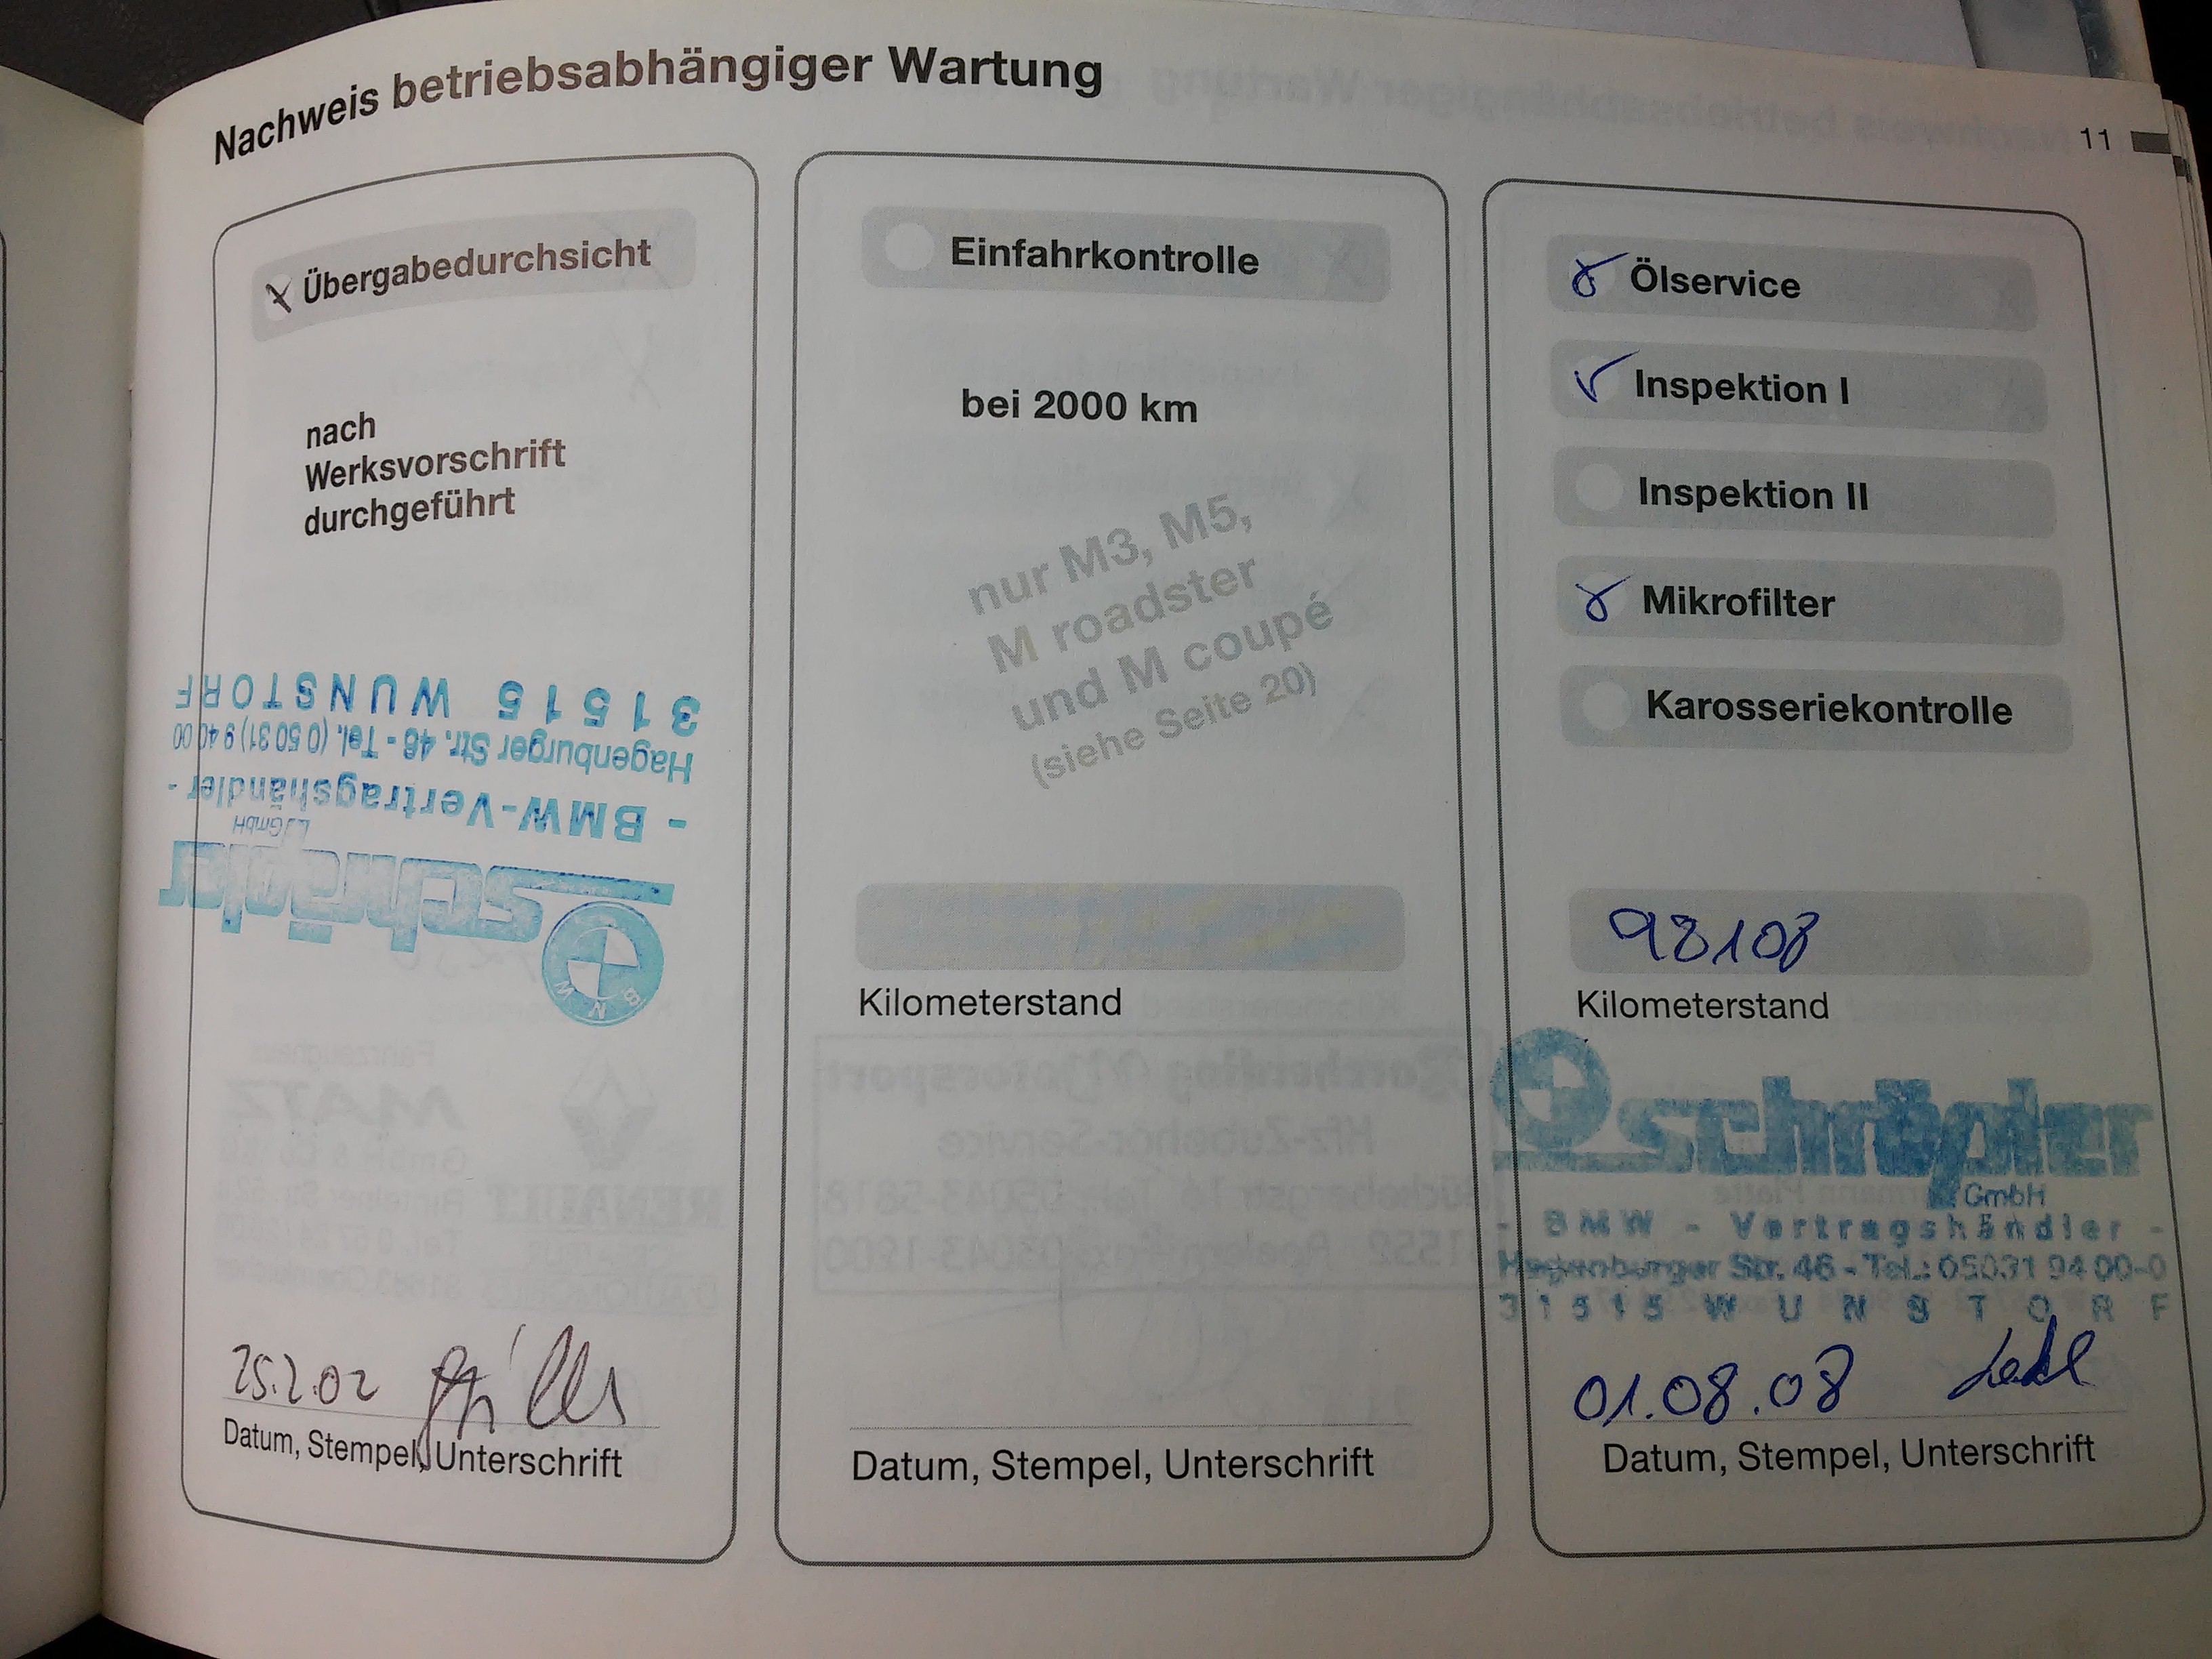 Nachweis betriebsabhängiger Wartung
11
Übergabedurchsicht
nach
Werksvorschrift
durchgeführt
schräpler
GmbH
- BMW-Vertragshändler -
Hagenburger Str. 46 - Tel. (0 50 31) 9 40 00
31515 WUNSTORF
25.2.02
Datum, Stempel, Unterschrift
Einfahrkontrolle
bei 2000 km
nur M3, M5,
M roadster
und M coupé
(siehe Seite 20)
Kilometerstand
Datum, Stempel, Unterschrift
Ölservice
Inspektion I
Inspektion II
Mikrofilter
Karosseriekontrolle
98108
Kilometerstand
schräpler
GmbH
- BMW - Vertragshändler -
Hagenburger Str. 46 - Tel.: 05031 94 00-0
31515 WUNSTORF
01.08.08
Datum, Stempel, Unterschrift